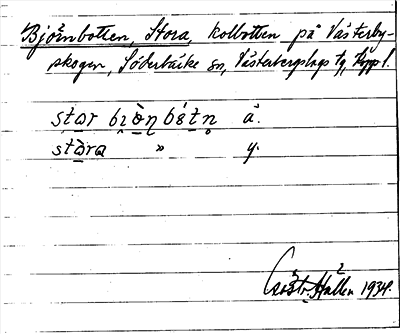 Björnbotten, Stora, kolbotten på Västerby-
skogen, Söderbärke sn, Västerbergslags tg, Kppl.
star bɩön bòtn̥ ä.
stòra » y.
Hållen 1934.